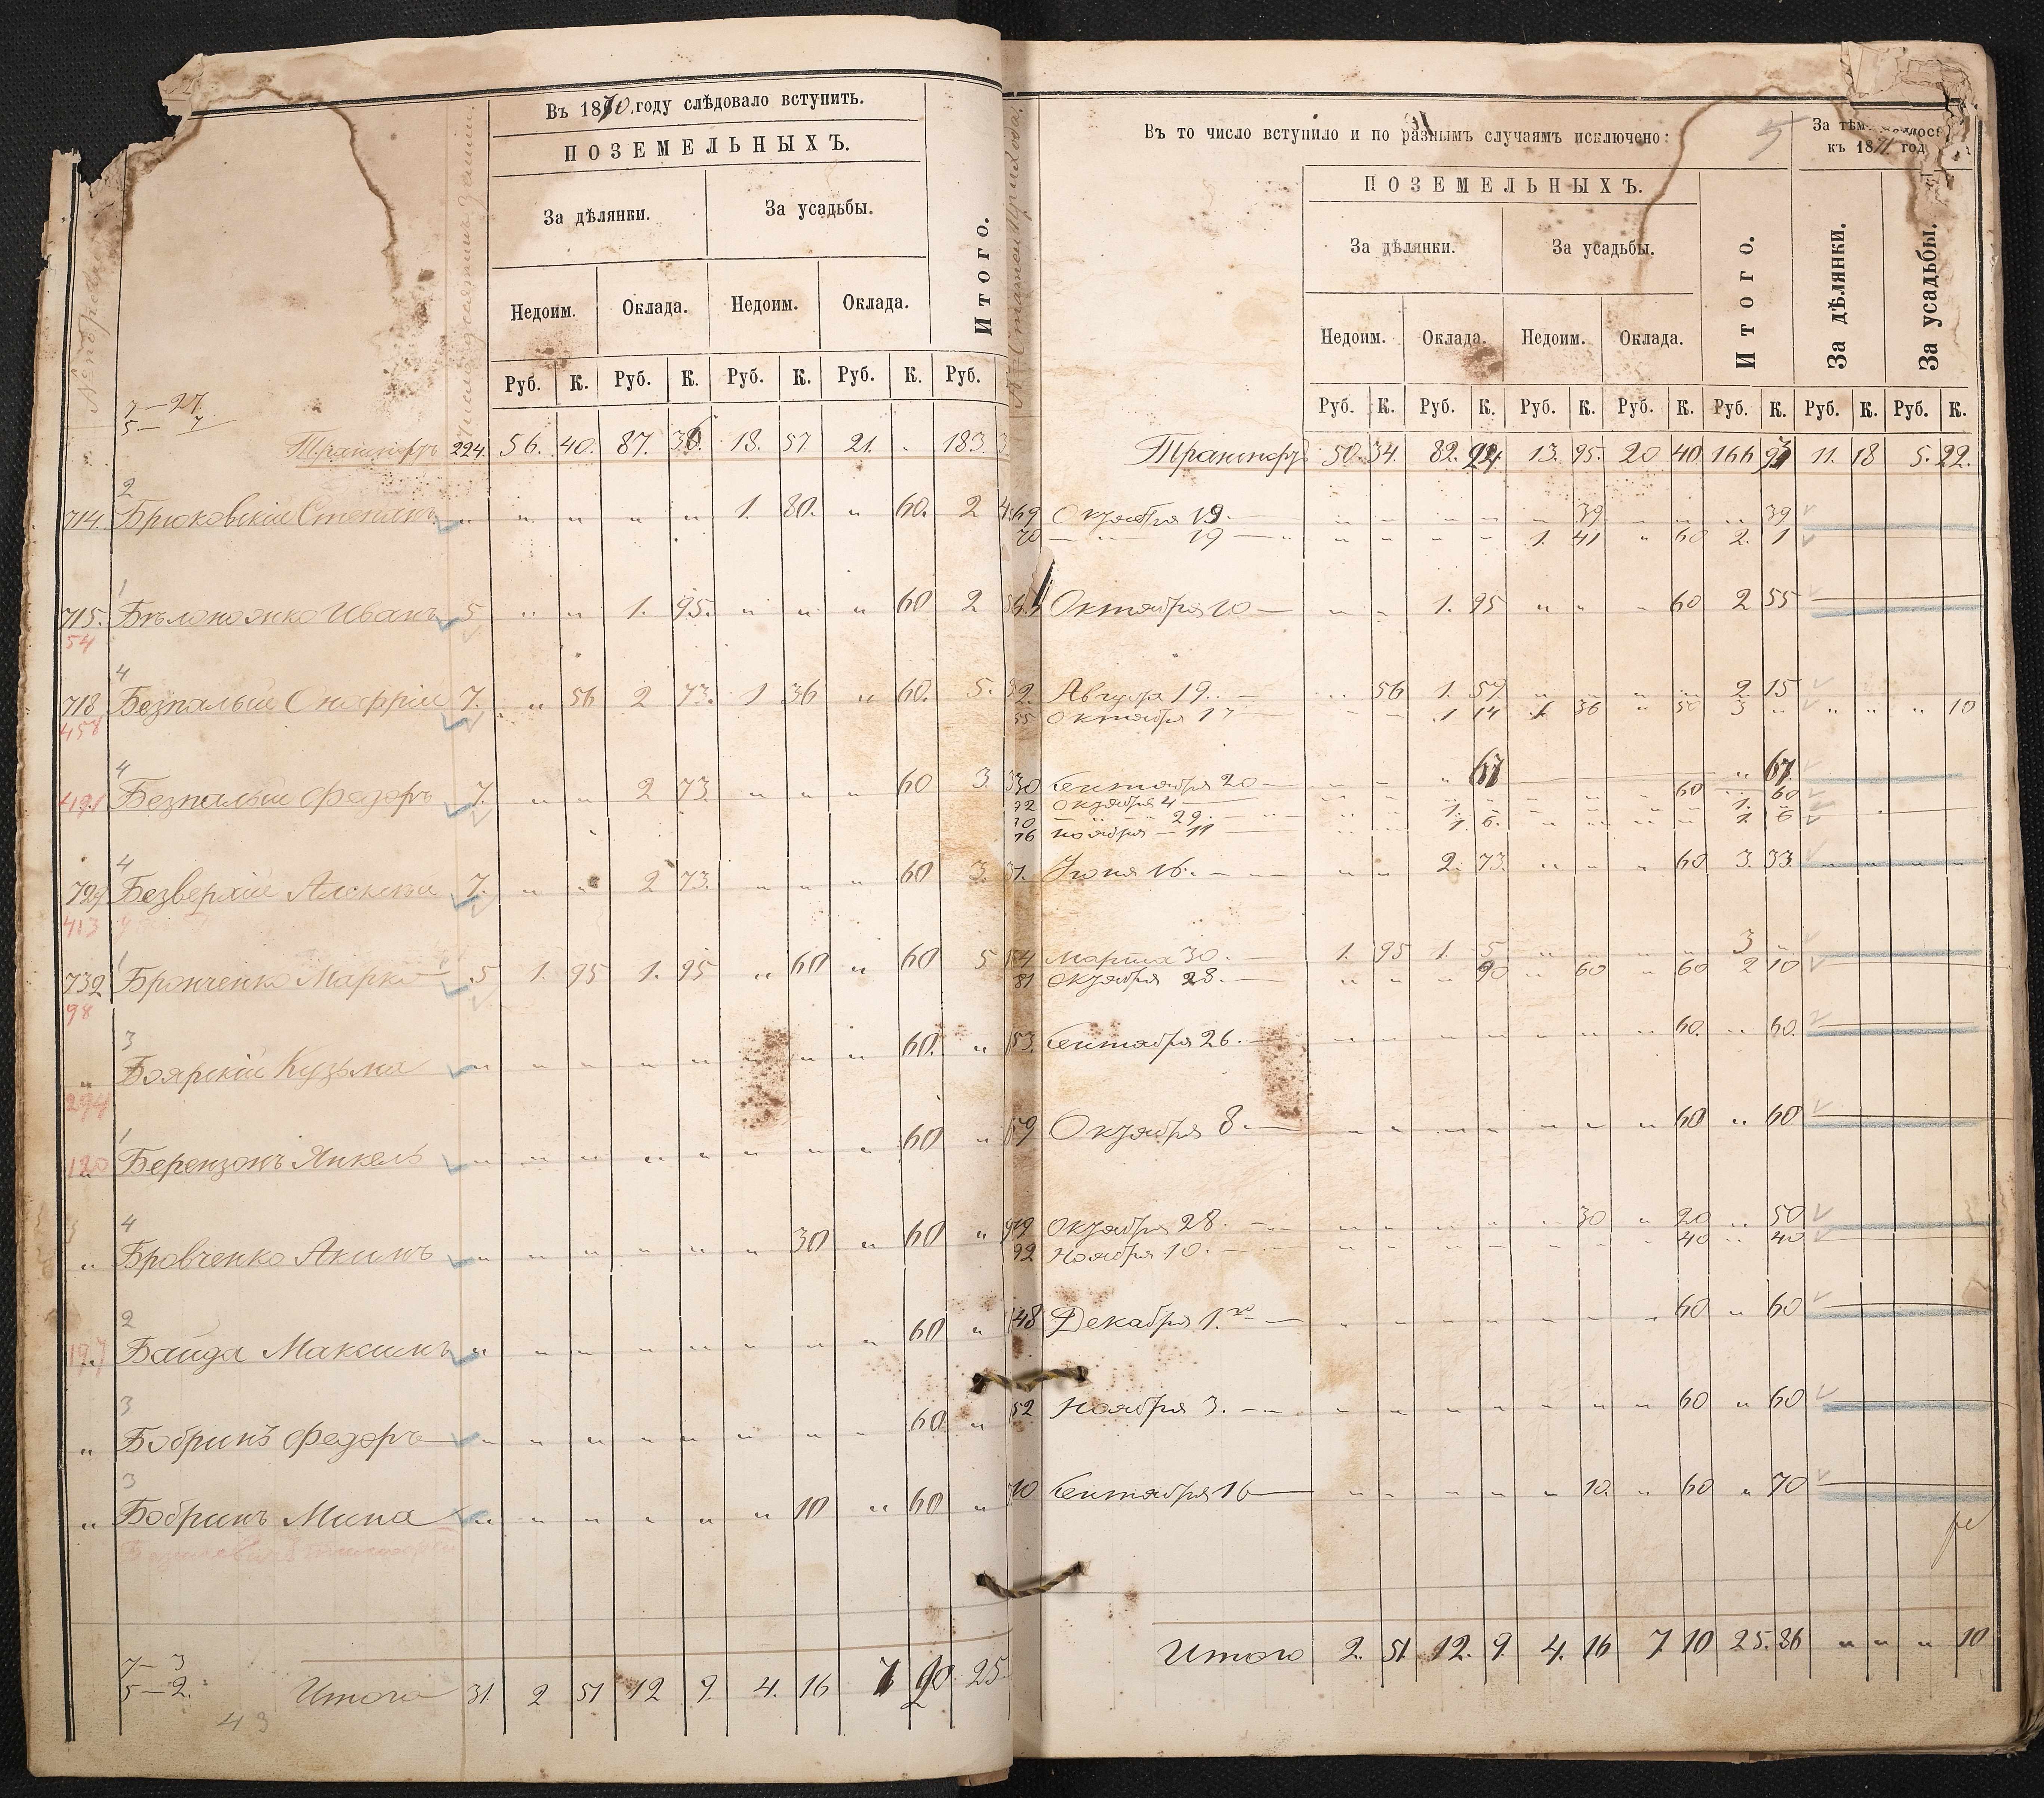 Въ 1870 году слѣдовало вступить.
ПОЗЕМЕЛЬНЫХЪ.
За дѣлянки. За усадьбы.
Итого.
Недоим. Оклада. Недоим. Оклада.
Руб. К. Руб. К. Руб. К. Руб. К. Руб.
7—27
5— 7
Транспортъ 224. 56. 40. 87. 36 18. 57 21. . 183. 3
2
714. Брюковскій Степанъ " " " " " 1. 80. " 60. 2 4
1
715. Бѣлоножко Иванъ 5 " " 1. 95. " " " 60 2
54
4
718 Безпалый Онофрій 7. " 56 2 73. 1 36 " 60. 5.
458
4
491 Безпалый Федоръ 7. " " 2 73. " " " 60 3.
4
729 Безверхій Алексѣй 7. " " 2 73. " " " 60 3.
413
1
732 Бронченко Марко 5 1. 95 1. 95 " 60 " 60 5
98
3
" Боярскій Кузьма " " " " " " " " 60. "
294
1
120 Березонъ Янкель " " " " " " " " 60 "
4
" Бровченко Акимъ " " " " " " 30 " 60 "
2
197 Байда Максимъ " " " " " " " " 60 "
3
" Бобринъ Федоръ " " " " " " " " 60 "
3
" Бобринъ Мина " " " " " " 10 " 60 "
7— 3
5—2.
Итого 31. 2 51 12 9. 4. 16 7 20 25
43
Въ то число вступило и по разнымъ случаямъ исключено:
5
За тѣмъ
къ 1871 год
ПОЗЕМЕЛЬНЫХЪ.
За дѣлянки. За усадьбы.
Итого. За дѣлянки. За усадьбы.
Недоим. Оклада. Недоим. Оклада.
Руб. К. Руб. К. Руб. К. Руб. К. Руб. К. Руб. К. Руб. К.
Транспортъ 50. 34. 82. 24. 13. 95. 20 40 166 93 11. 18 5. 22.
69 Октября 19. — " " " " " 39 " " " 39
70 — " 19 — " " " " 1. 41 " 60 2. 1
Октября 10 — " " 1. 95 " " " 60 2 55
Августа 19. — " 56 1. 59 " " " " 2 15
55 Октября 17 " " 1 14 1. 36 " 50 3 " " " " 10
30 Сентября 20 — " " " 67 " 67.
92 Октября 4 — " " " " " " " 60 " 60
— " 29. — " " 1. " " " " " 1. "
16 Ноября — 11 — " " 1. 6. " " " " 1. 6
Іюня 16. — " " 2. 73. " " " 60 3. 33. " " " "
Марта 30. — 1. 95 1. 5 " " " " 3 "
81 Октября 28. — " " " 90 " 60 " 60 2 10
53. Сентября 26. — " " " " " " " 60. " 60.
59 Октября 8. — " " " " " " " 60 " 60
Октября 28. — " " " " " 30 " 20 " 50
92 Ноября 10. — " " " " " " " 40 " 40
48 Декабря 1. го — " " " " " " " 60 " 60
52 Ноября 3. — " " " " " " " 60 " 60
10 Сентября 16 — " " " " " 10. " 60 " 70
Итого 2. 51 12. 9. 4. 16 7 10 25. 86 " " " 10